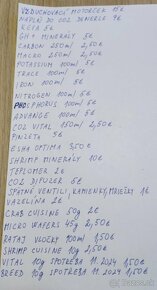 VZDUCHOVACÍ MOTORČEK 15€
NÁPLŇ DO CO2 DENERLE 9€
KEFA 5€
GH+ MINERÁLY 5€
CARBON 250ml 2,50€
MACRO 250ml 2,50€
POTASSIUM 100ml 5€
TRACE 100ml 5€
IRON 100ml 5€
NITROGEN 100ml 5€
PHOSPHORUS 100ml 5€
ADVANCE 100ml 5€
CO2 VITAL 150ml 2,50€
PINZETA 5€
ESHA OPTIMA 3,50€
SHRIMP MINERALY 10€
TEPLOMER 2€
CO2 DIFUZER 5€
SPÄTNÉ VENTILI, KAMIENKY, MRIEŽKY 1€
VAZELÍNA 2€
CRAB CUISINE 50g 2€
MICRO WAFERS 45g 2,50€
RATAJ VLOČKY 100ml 1,50€
SHRIMP CUISINE 10g 2,50€
VITAL 10g SPOTREBA 11.2024 1,50€
BREED 10g SPOTREBA 11.2024 1,50€